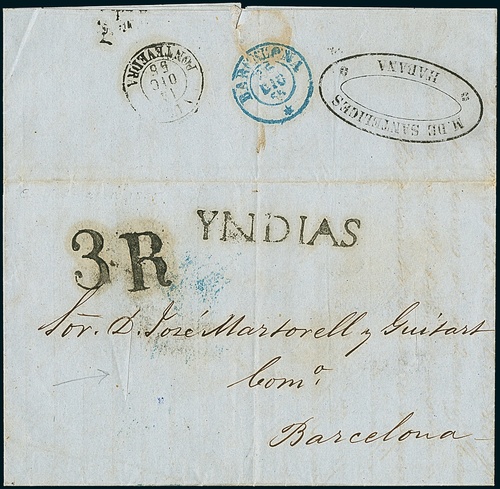 PONTEVEDRA
DIC
BARCELONA
DIC
M. DE SANTELICES
HABANA
YNDIAS
3 R
Sor. D. José Martorell y Guitart
Como.
Barcelona